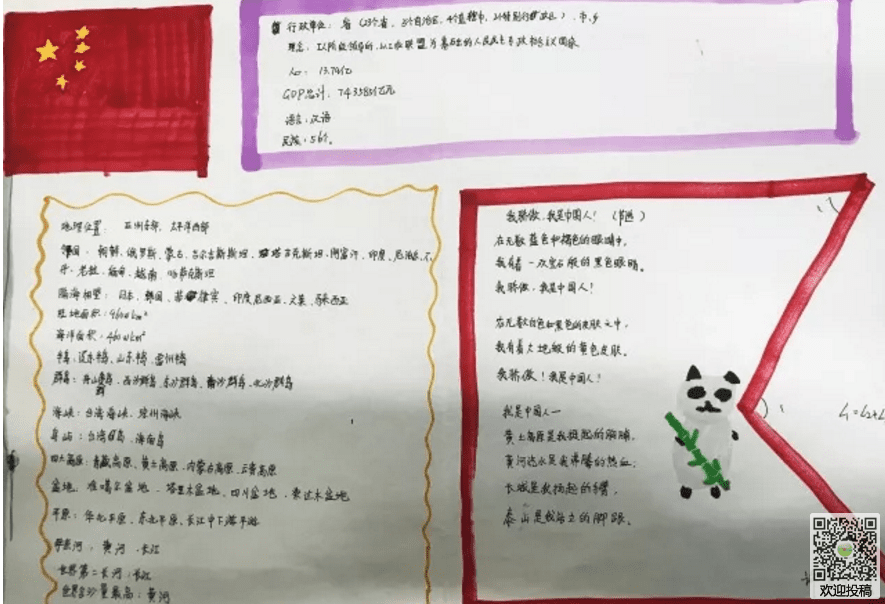 行政单位：省（23个省、5个自治区、4个直辖市、2个特别行政区）、市、乡
理念：以工人阶级领导的，以工农联盟为基础的人民民主专政社会主义国家
人口：13.74亿
GDP总计：743585亿元
语言：汉语
民族：56个。
地理位置：亚洲东部、太平洋西部
邻国：朝鲜、俄罗斯、蒙古、吉尔吉斯斯坦、塔吉克斯坦、阿富汗、印度、尼泊尔、不
丹、老挝、缅甸、越南、哈萨克斯坦
隔海相望：日本、韩国、菲律宾、印度尼西亚、文莱、马来西亚
陆地面积：960万km²
海洋面积：460万km²
半岛：辽东半岛、山东半岛、雷州半岛
群岛：舟山群岛、西沙群岛、东沙群岛、南沙群岛、
海峡：台湾海峡、琼州海峡
岛屿：台湾岛、海南岛
四大高原：青藏高原、黄土高原、内蒙古高原、云贵高原
盆地：准噶尔盆地、塔里木盆地、四川盆地、柴达木盆地
平原：华北平原、东北平原、长江中下游平原
母亲河：黄河、长江
世界第三长河：长江
世界含沙量最高：黄河
我骄傲，我是中国人！（节选）
在无数蓝色和褐色的眼睛中，
我有着一双宝石般的黑色眼睛。
我骄傲，我是中国人！
在无数白色和黑色的皮肤之中，
我有着大地般的黄色皮肤。
我骄傲！我是中国人！
我是中国人—
黄土高原是我挺起的胸脯，
黄河流水是我沸腾的热血；
长城是我扬起的手臂，
泰山是我站立的脚跟。
欢迎投稿